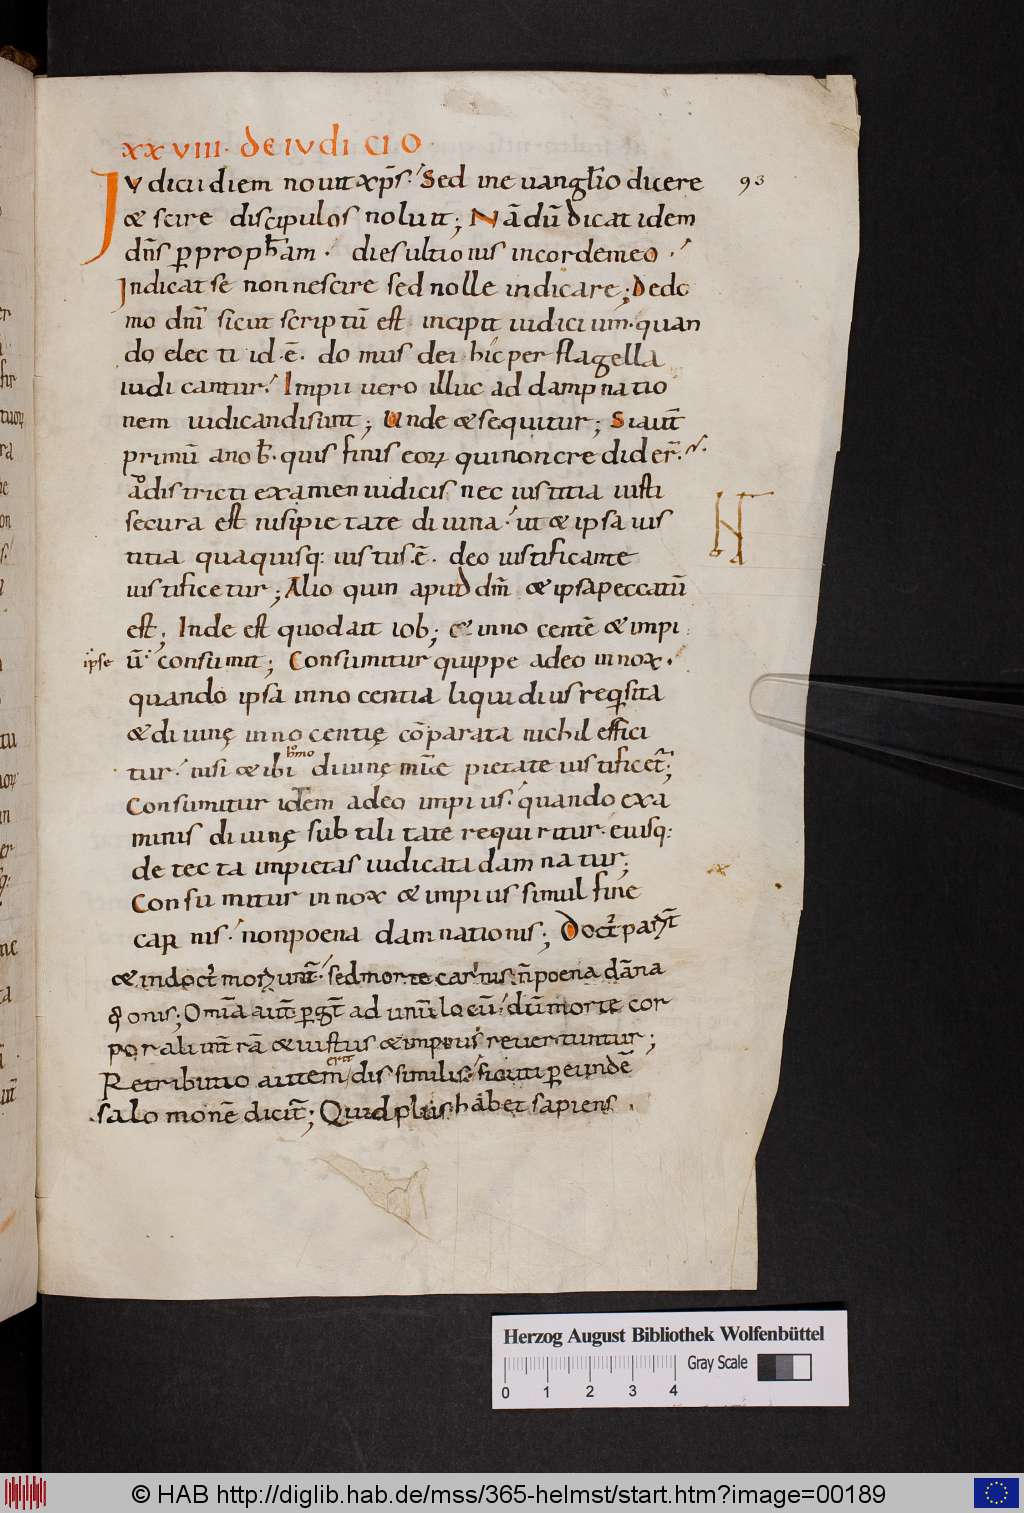 xxviii. de iudicio
93
Iudicii diem nouit xp̄s. Sed in euangl̄io dicere
& scire discipulos noluit; Nā dū dicat idem
dn̄s p̱ proph̄am. dies ultionis in corde meo.
Indicat se non nescire sed nolle indicare; De do
mo dn̄i sicut scriptū est incipit iudicium. quan
do electi id.ē. domus dei hic per flagella
iudicantur. Impii uero illuc ad dampnatio
nem iudicandi sunt; Unde & sequitur; Si aut̄
primū a nob̄. quis finis eoꝝ qui non credider̄.
A districti examen iudicis nec iustitia iusti
secura est nisi pietate diuina. ut & ipsa ius
titia qua quisq: iustus.ē. deo iustificante
iustificetur; Alioquin apud dm̄ & ipsa peccatū
est; Inde est quod ait iob; & innocentē & impi
ipse
ū. consumit; Consumitur quippe a deo innox.
quando ipsa innocentia liquidius reqͥsita
& diuinę innocentię cōparata nichil effici
tur. nisi & ibi diuinę mīe pietate iustificet̄;
homo
Consumitur idem a deo impius. quando exa
minis diuinę subtilitate requiritur. eiusq:
detecta impietas iudicata damnatur;
Consumitur innox & impius simul fine
carnis. non poena damnationis; Doct̄ parit̄
& indoct̄ moriunt̄. sed morte carnis. n̄ poena dāna
tionis; Omīa aut̄ p̱gt̄ ad unū locū. dū morte cor
porali in t̄rā & iustus & impius reuertuntur;
Retributio autem dissimilis. sicuti p̱ eundē
erit
salomonē dicit̄; Quid plus habet sapiens.
Herzog August Bibliothek Wolfenbüttel
Gray Scale
0 1 2 3 4
© HAB http://diglib.hab.de/mss/365-helmst/start.htm?image=00189